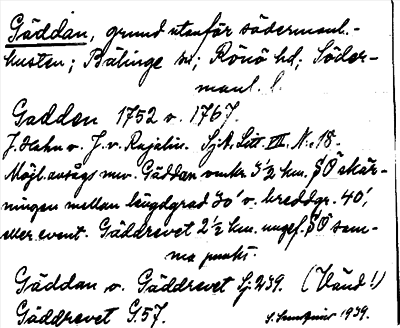 Gäddan, grund utanför södermanl.-
kusten; Bälinge sn; Rönö hd; Söder-
manl. l.
Gadden 1752 o. 1767.
J. Hahn o. J. v. Rajalin. Sj.k. Litt. VII. N:18.
Möjl. avsågs nuv. Gäddan omkr. 3½ km. SÖ skär-
ningen mellan längdgrad 30' o. breddgr. 40',
eller event. Gäddrevet 2½ km. ungef. SÖ sam-
ma punkt.
Gäddan o. Gäddrevet Sj. 239. (Vänd!)
Gäddrevet G. 57.
1939.